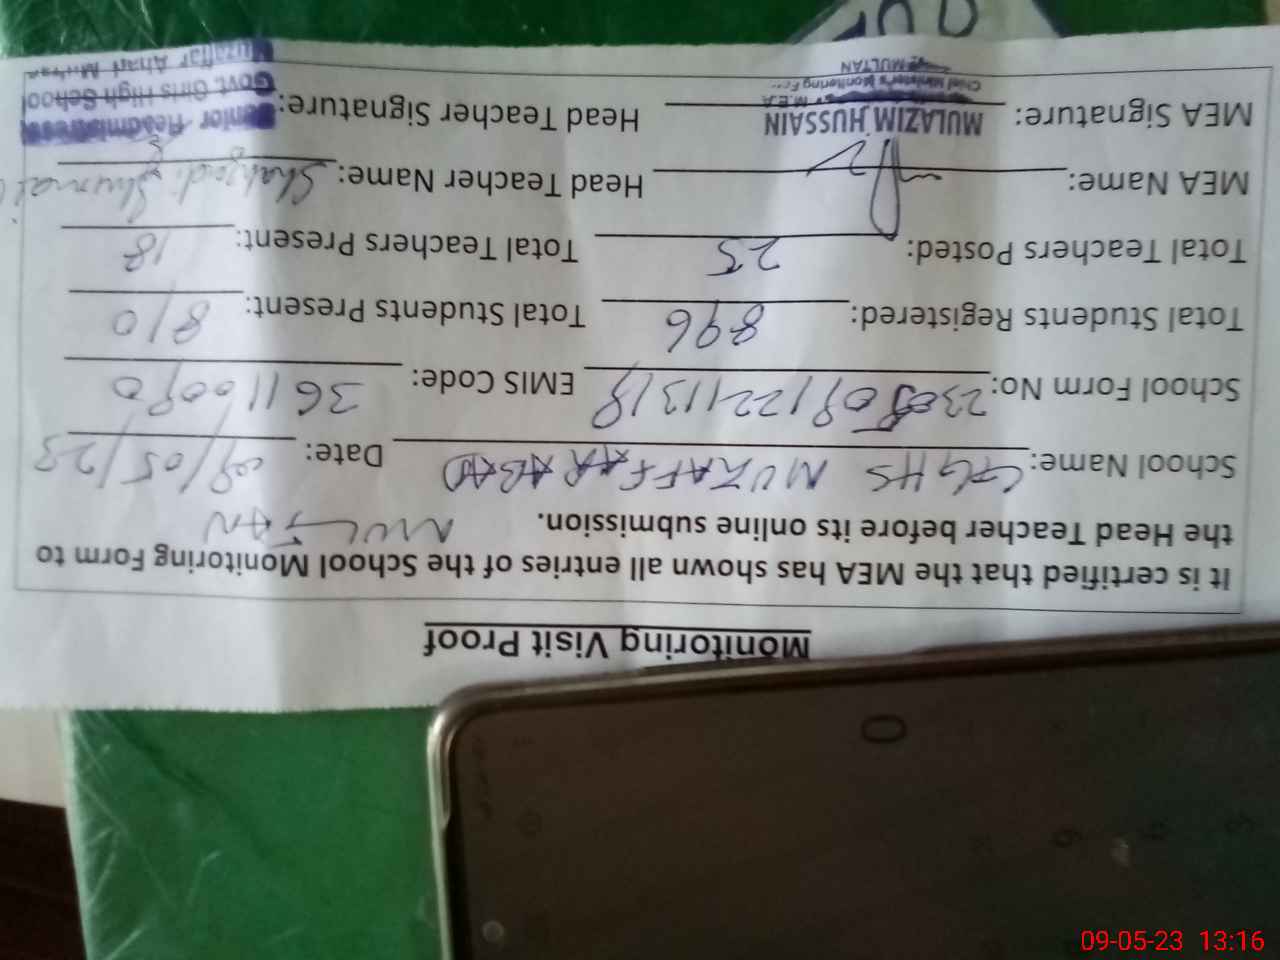 Monitoring Visit Proof
It is certified that the MEA has shown all entries of the School Monitoring Form to
the Head Teacher before its online submission. MULTAN
School Name: GGHS MUZAFFAR ABAD Date: 09/05/23
School Form No: EMIS Code:
Total Students Registered: 896 Total Students Present: 810
Total Teachers Posted: 25 Total Teachers Present: 18
MEA Name: Head Teacher Name: Shahzadi
MEA Signature: Head Teacher Signature:
MULAZIM HUSSAIN
M.E.A
Chief Minister's Monitoring
MULTAN
Senior Headmistress
Govt. Girls High School
Muzaffar Abad Multan
09-05-23 13:16